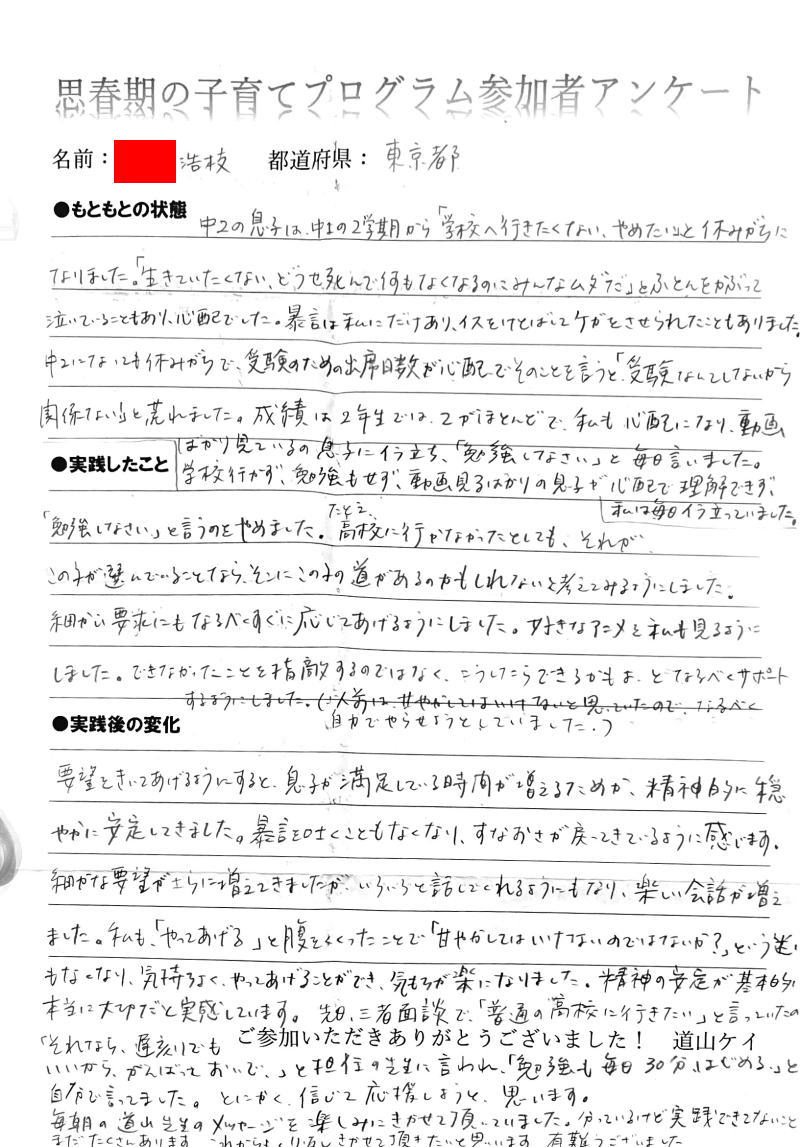 思春期の子育てプログラム参加者アンケート
名前： 浩枝 都道府県： 東京都
●もともとの状態
中2の息子は、中1の2学期から「学校へ行きたくない、やめたい」と休みがちに
なりました。「生きていたくない、どうせ死んで何もなくなるのにみんなムダだ」とふとんをかぶって
泣いていることもあり、心配でした。暴言は私にだけあり、イスをけとばしてケガをさせられたこともありました。
中2になっても休みがちで、受験のための出席日数が心配でそのことを言うと、「受験なんてしないから
関係ない」と荒れました。成績は2年生では、2がほとんどで、私も心配になり、動画
ばかり見ているの息子にイラ立ち、「勉強しなさい」と毎日言いました。
学校行かず、勉強もせず、動画見るばかりの息子が心配で理解できず、
私は毎日イラ立っていました。
●実践したこと
「勉強しなさい」と言うのをやめました。たとえ、高校に行かなかったとしても、それが
この子が選んでいることなら、そこにこの子の道があるのかもしれないと考えてみるようにしました。
細かい要求にもなるべくすぐに応じてあげるようにしました。好きなアニメを私も見るように
しました。できなかったことを指敵するのではなく、こうしたらできるかもよ、となるべくサポート
するようにしました。(以前は、甘やかしてはいけないと思っていたので、なるべく
自力でやらせようとしていました。)
●実践後の変化
要望をきいてあげるようにすると、息子が満足している時間が増えるためか、精神的に穏
やかに安定してきました。暴言を吐くこともなくなり、すなおさが戻ってきているように感じます。
細かな要望がさらに増えてきましたが、いろいろと話してくれるようにもなり、楽しい会話が増え
ました。私も、「やってあげる」と腹をくくったことで「甘やかしてはいけないのではないか?」という迷い
もなくなり、気持ちよく、やってあげることができ、気もちが楽になりました。精神の安定が基本的に
本当に大切だと実感しています。先日、三者面談で、「普通の高校に行きたい」と言っていたの
「それなら、遅刻でも
いいから、がんばっておいで、」と担任の先生に言われ、「勉強も毎日30分、はじめる、」と
自分で言ってました。とにかく、信じて応援しようと、思います。
ご参加いただきありがとうございました！ 道山ケイ
毎朝の道山先生のメッセージを楽しみにきかせて頂いていました。分っているけど実践できてないこと
まだたくさんあります。これからもくり返しきかせて頂きたいと思います。有難うございました。